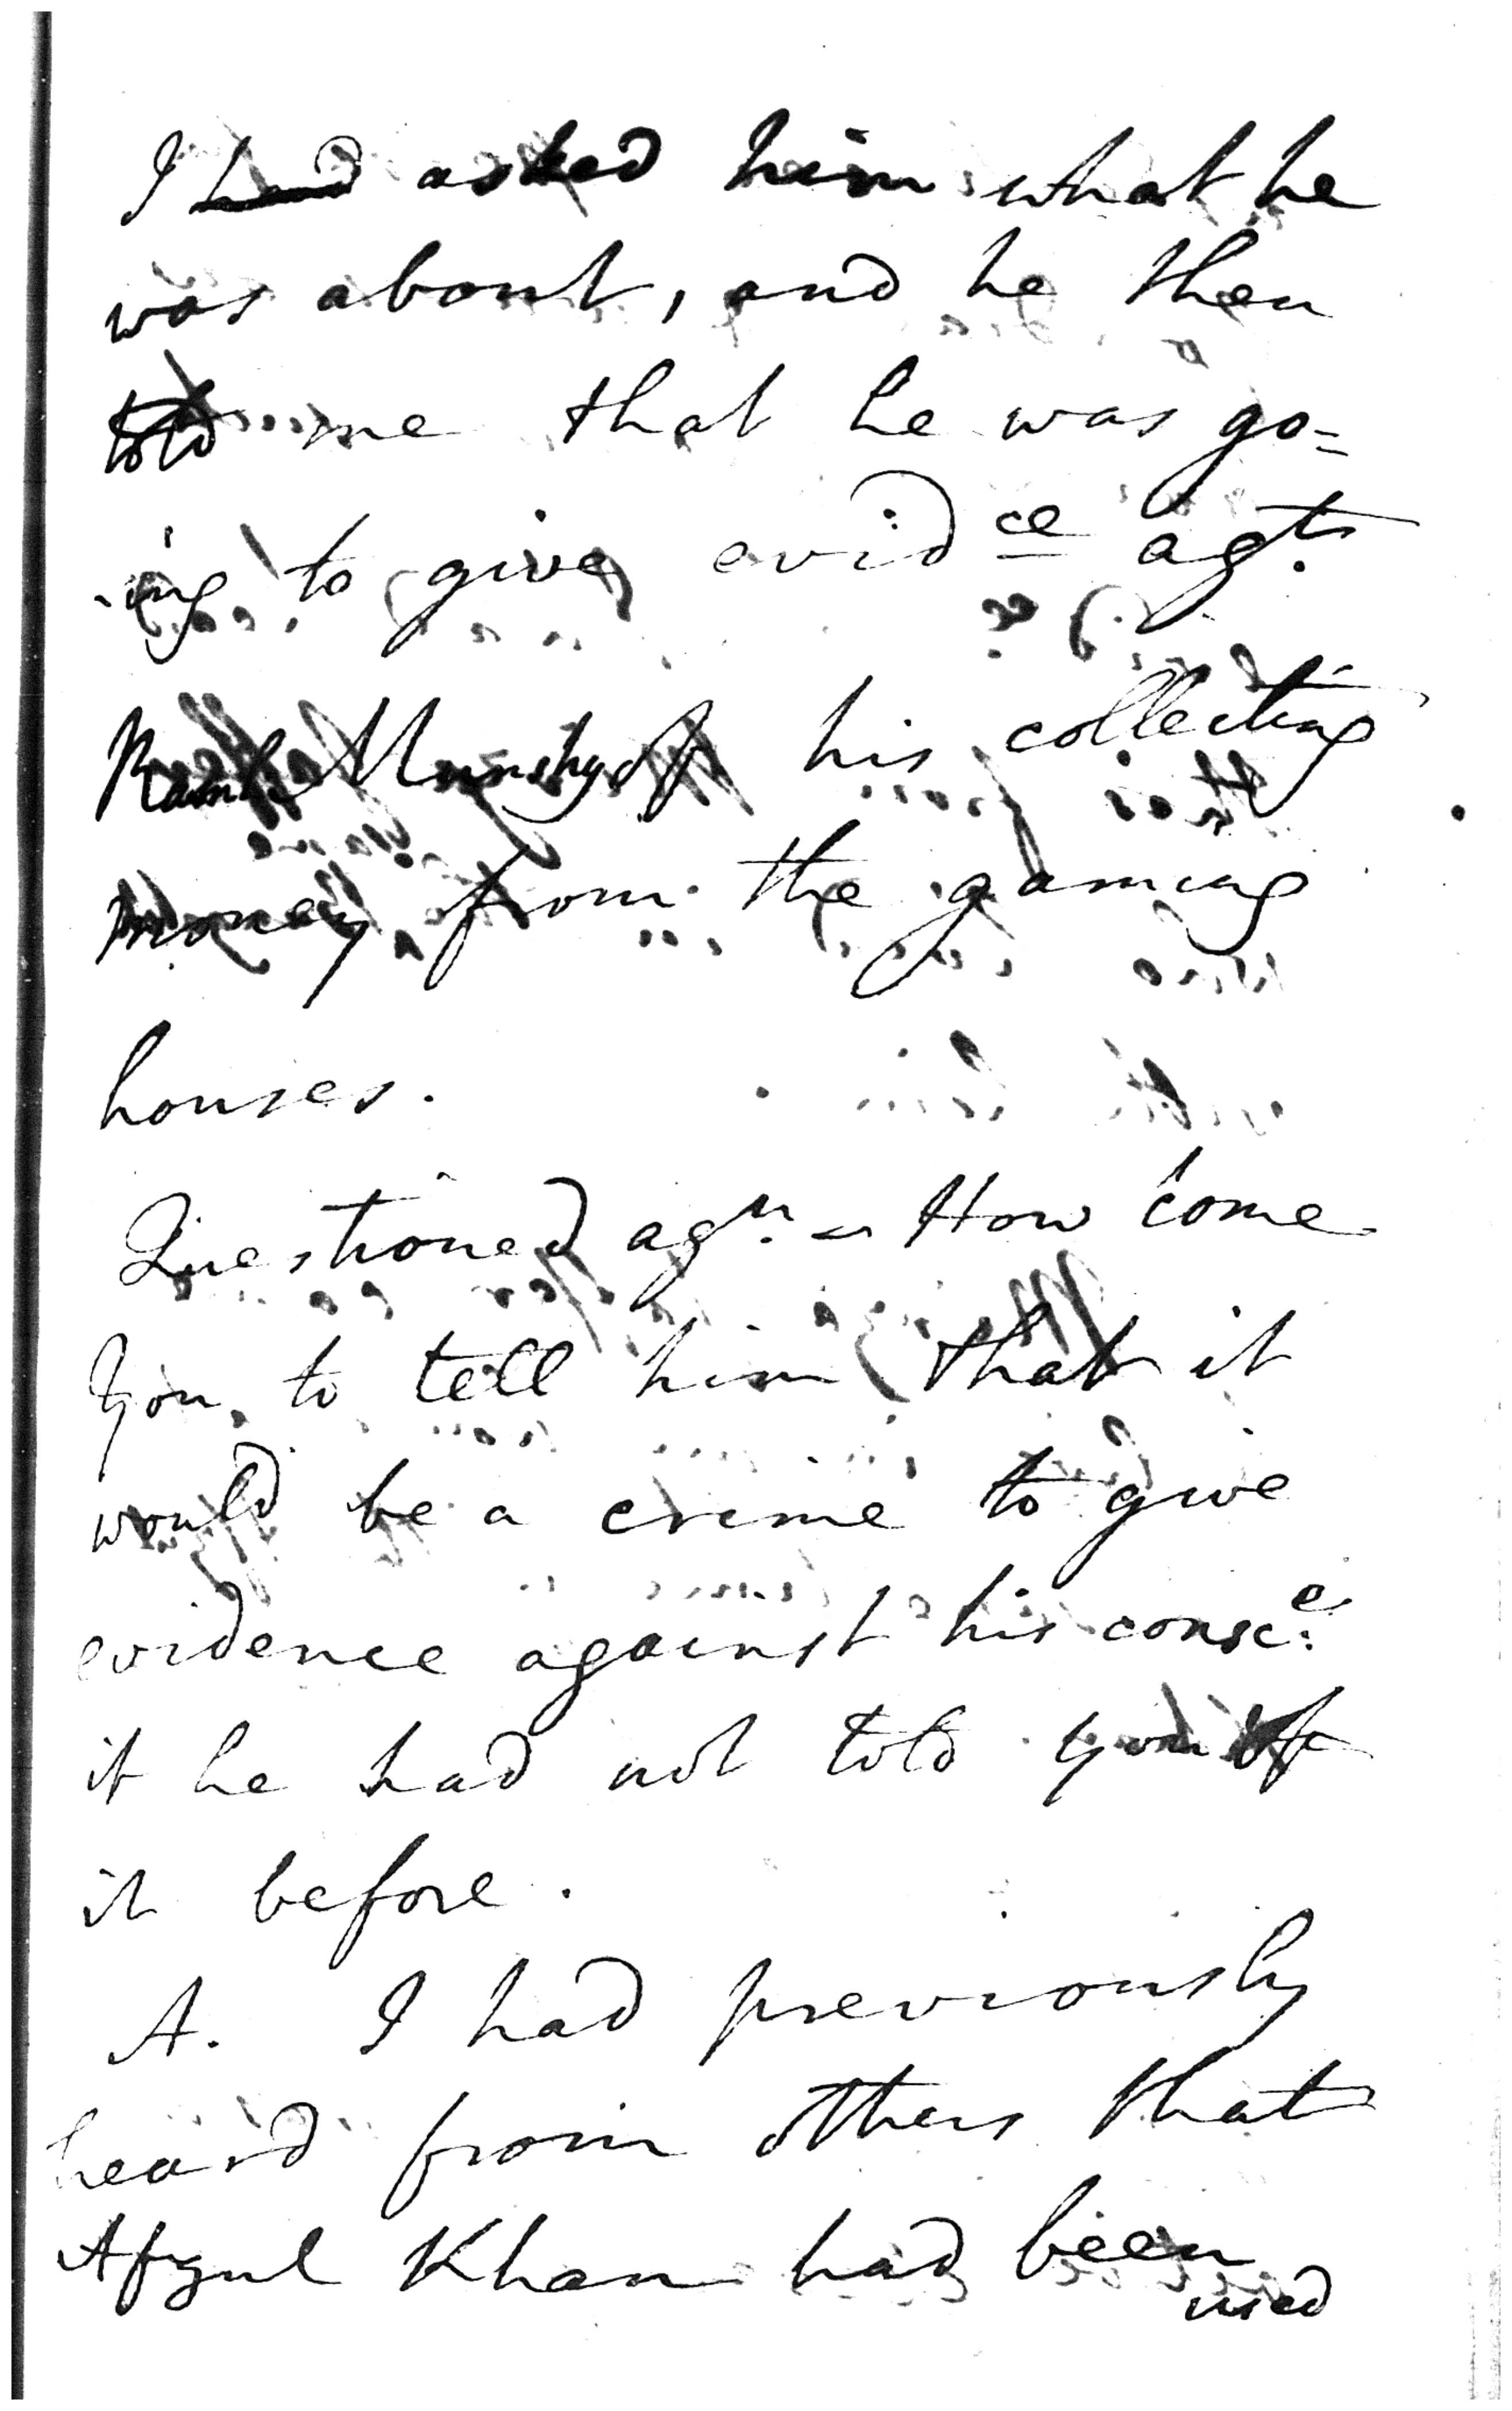 I had asked him what he
was about, and he then
told me that he was go=
ing to give evidce agt.
Munshy of his collecting
money from the gaming
houses.
Questioned agn. – How come
you to tell him that it
would be a crime to give
evidence against his consce.
if he had not told you of
it before.
A. I had previously
heard from others that
Afzul Khan had been
used